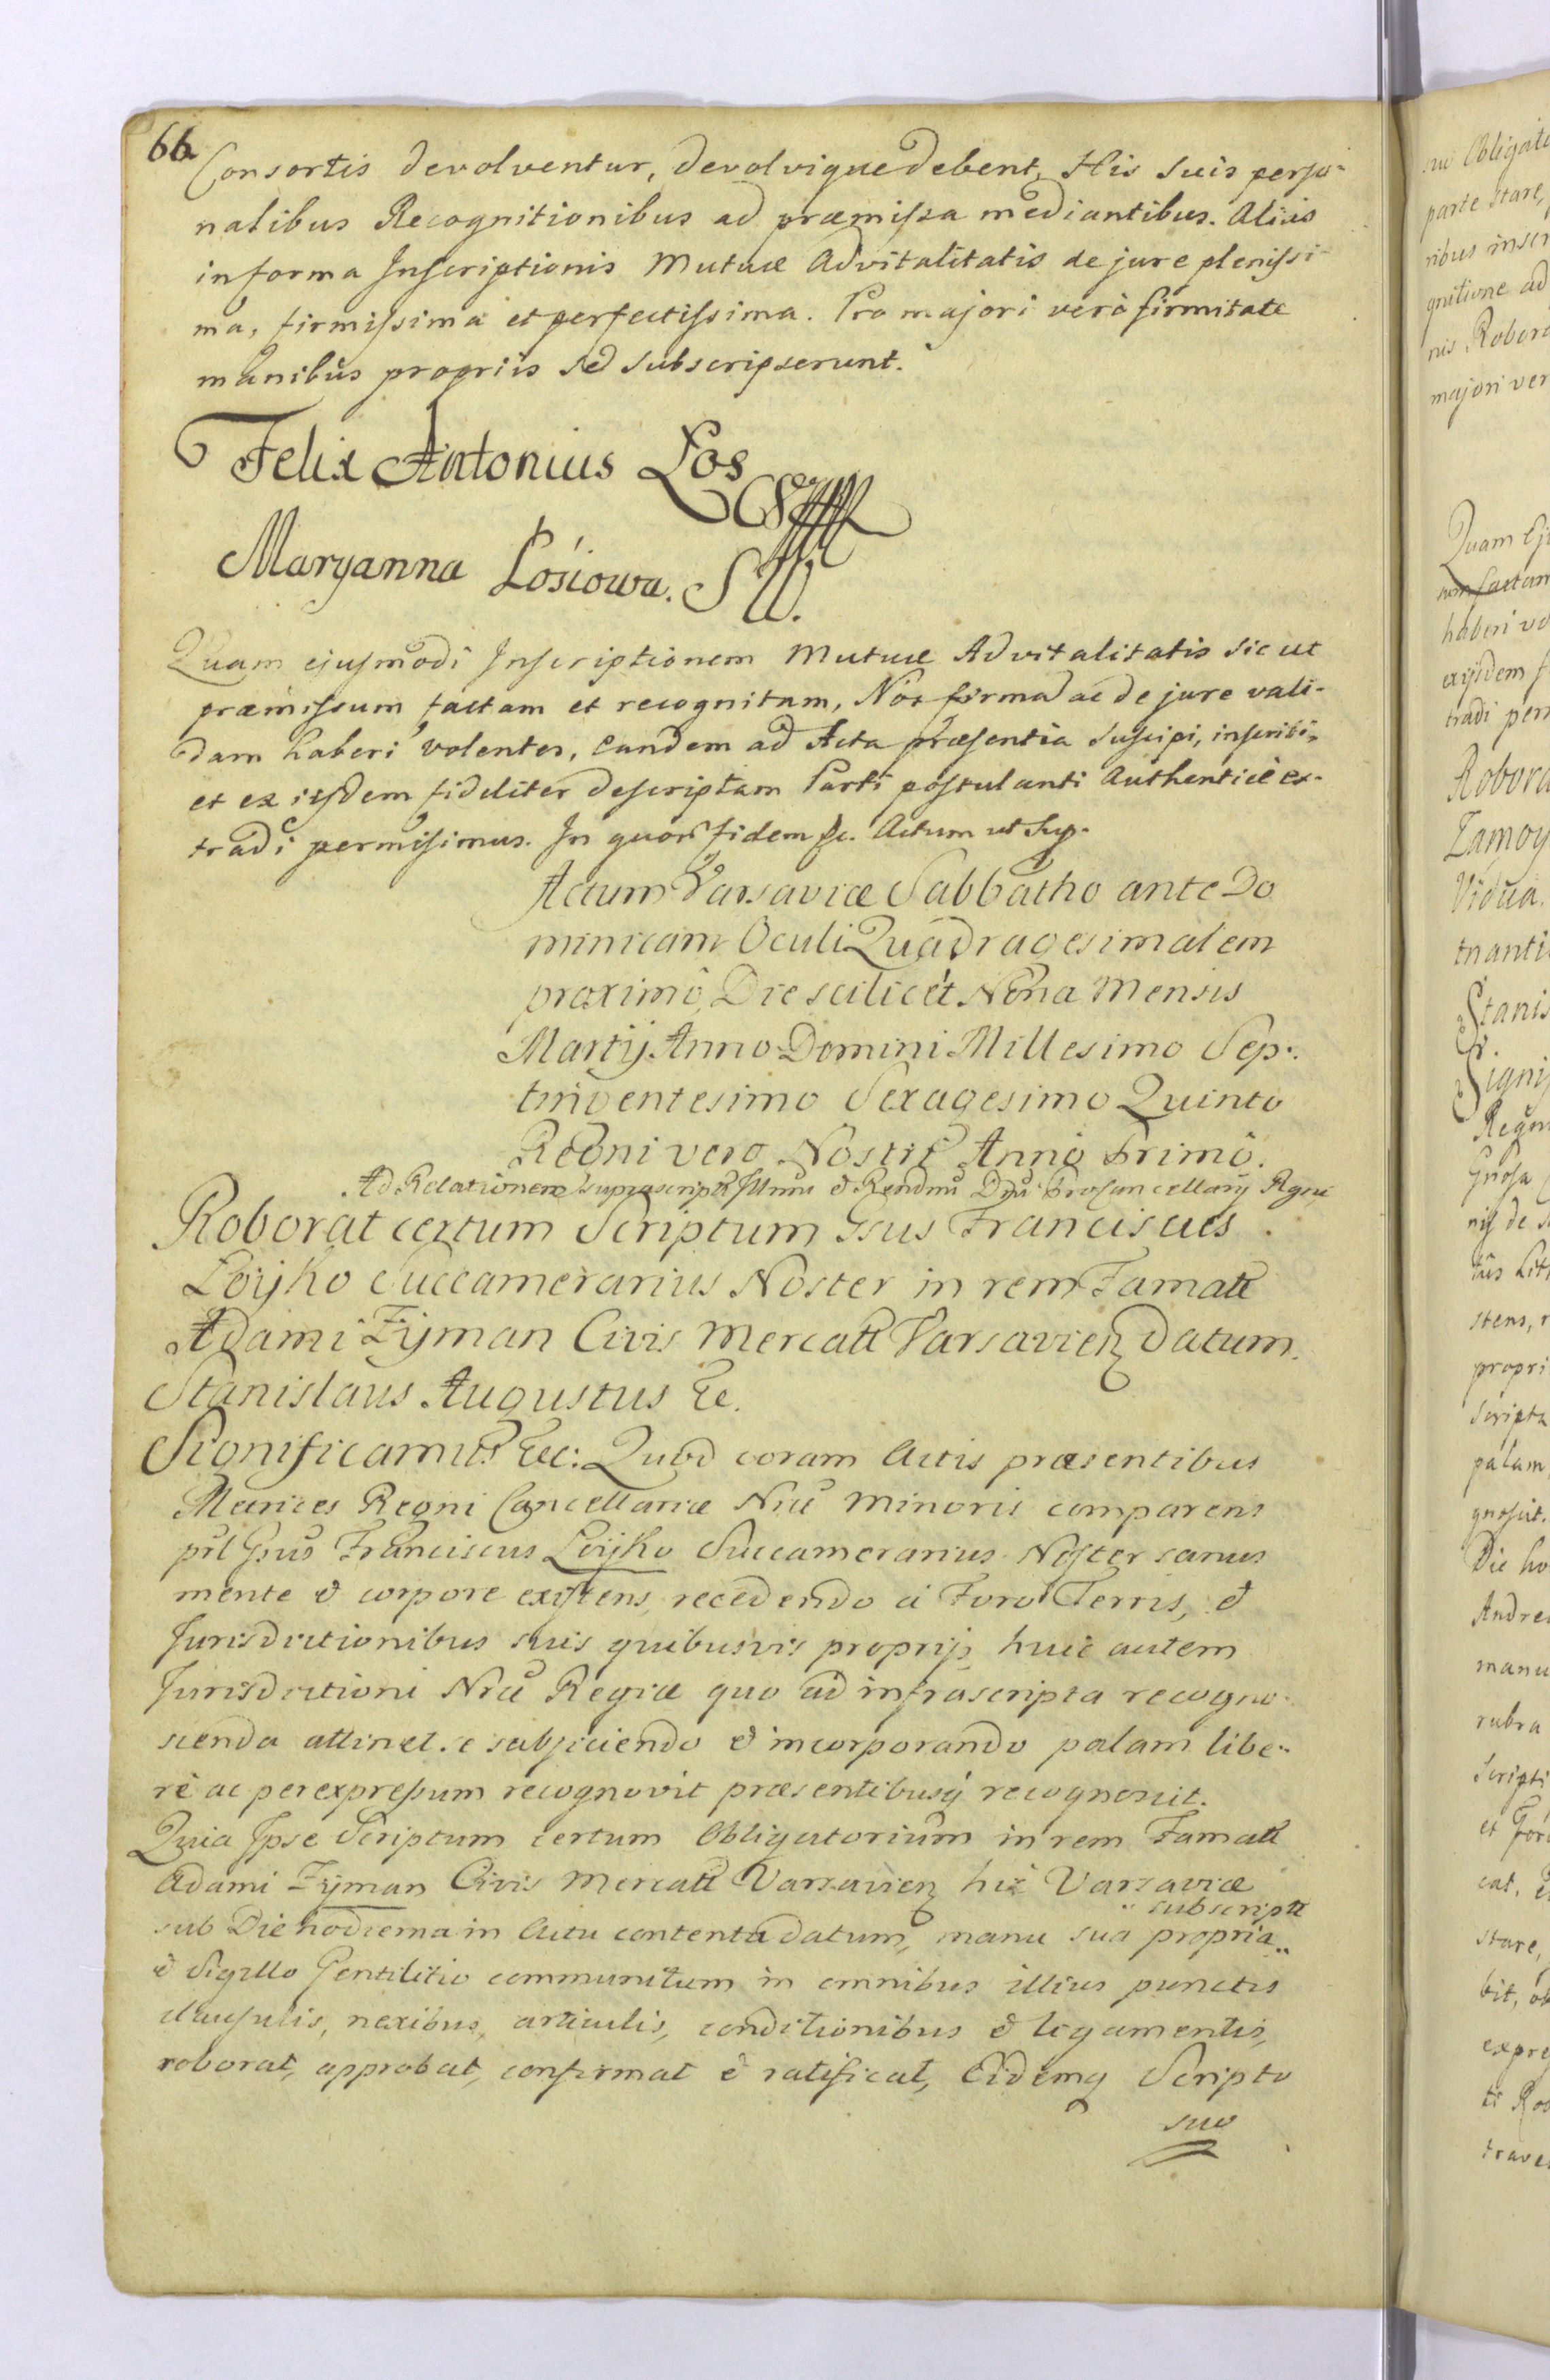 66
Consortis devolventur, devolvique debent, His suis perso-
nalibus Recognitionibus ad præmissa mediantibus. Aliis
in forma Inscriptionis Mutuæ Advitalitatis de jure plenissi-
ma, firmissima et perfectissima. Pro majori verò firmitate
manibus propriis se subscripserunt.
Felix Antonius Łos
Maryanna Łosiowa.
Quam ejusmodi Inscriptionem Mutuæ Advitalitatis sic ut
præmissum factam et recognitam, Nos firma ac de jure vali-
dam haberi volentes, eandem ad Acta præsentia suscipi, inscribi,
et ex iisdem fideliter descriptam Parti postulanti Authenticè ex-
tradi permisimus. In quorũ fidem &c. Actum ut Sup.
Actum Varsaviæ Sabbatho ante Do
minicam Oculi Quadragesimalem
proximô, Die scilicèt Nona Mensis
Martij Anno Domini Millesimo Sep:
tingentesimo Sexagesimo Quinto
Regni vero Nostri Anno Primô.
Ad Relationem suprascripti Illmi & Rendmi Dñi Procancellarij Regni
Roborat certum Scriptum Gsus Franciscus
Łoyko Succamerarius Noster in rem Famati
Adami Zyman Civis Mercati Varsavien datum.
Stanislaus Augustus &c.
Significamus &c: Quod coram Actis præsentibus
Metrices Regni Cancellariæ Nræ Minoris comparens
prl Gsus Franciscus Łoyko Succamerarius Noster sanus
mente & corpore existens, recedendo à Foro Terris, &
Jurisdictionibus suis quibusvis proprijs, huic autem
Jurisdictioni Nræ Regiæ quo ad infrascripta recogno-
scenda attinet se subjiciendo & incorporando palam libe-
rè ac per expressum recognovit præsentibusq recognoscit.
Quia Ipse Scriptum certum Obligatorium in rem Famati
Adami Zyman Civis Mercati Varsavien hic Varsaviæ
subscript
sub Die hodierna in Actu contenta datum, manu sua propria
& Sigillo Gentilitio communitum in omnibus illius punctis
clausulis, nexibus, articulis, conditionibus & ligamentis,
roborat, approbat, confirmat & ratificat, Eidemq Scripto
suo
parte stare,
ribus inscr
gnitione ad
majori ver
Quam Ej
haberi vo
tradi per
Zamoy
Vidua.
tnanti
Stanis
stens, r
propri
Scripta
palam
Die ho
manu
rubra
Scripti
stare,